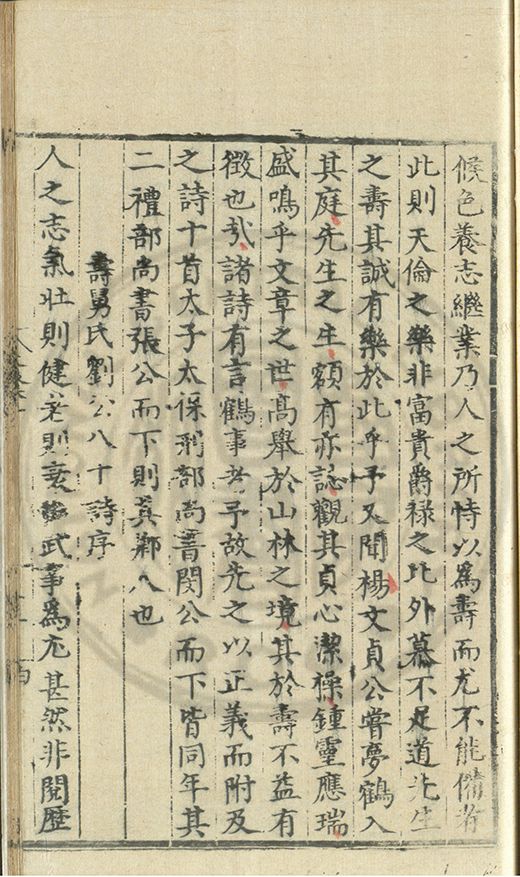 候色養志繼業乃人之所恃以爲壽而尤不能備者
此則天倫之樂非富貴爵祿之比外慕不足道先生
之壽其誠有樂於此乎予又聞楊文貞公嘗夢鶴入
其庭先生之生額有亦誌觀其貞心潔操鍾靈應瑞
盛鳴乎文章之世高舉於山林之境其於壽不益有
徵也㢤諸詩有言鶴事者予故先之以正義而附及
之詩十首太子太保刑部尚書閔公而下皆同年其
二禮部尚書張公而下則其鄉人也
壽舅氏劉公八十詩序
人之志氣壯則健老則衰武事爲尤甚然非閱歷